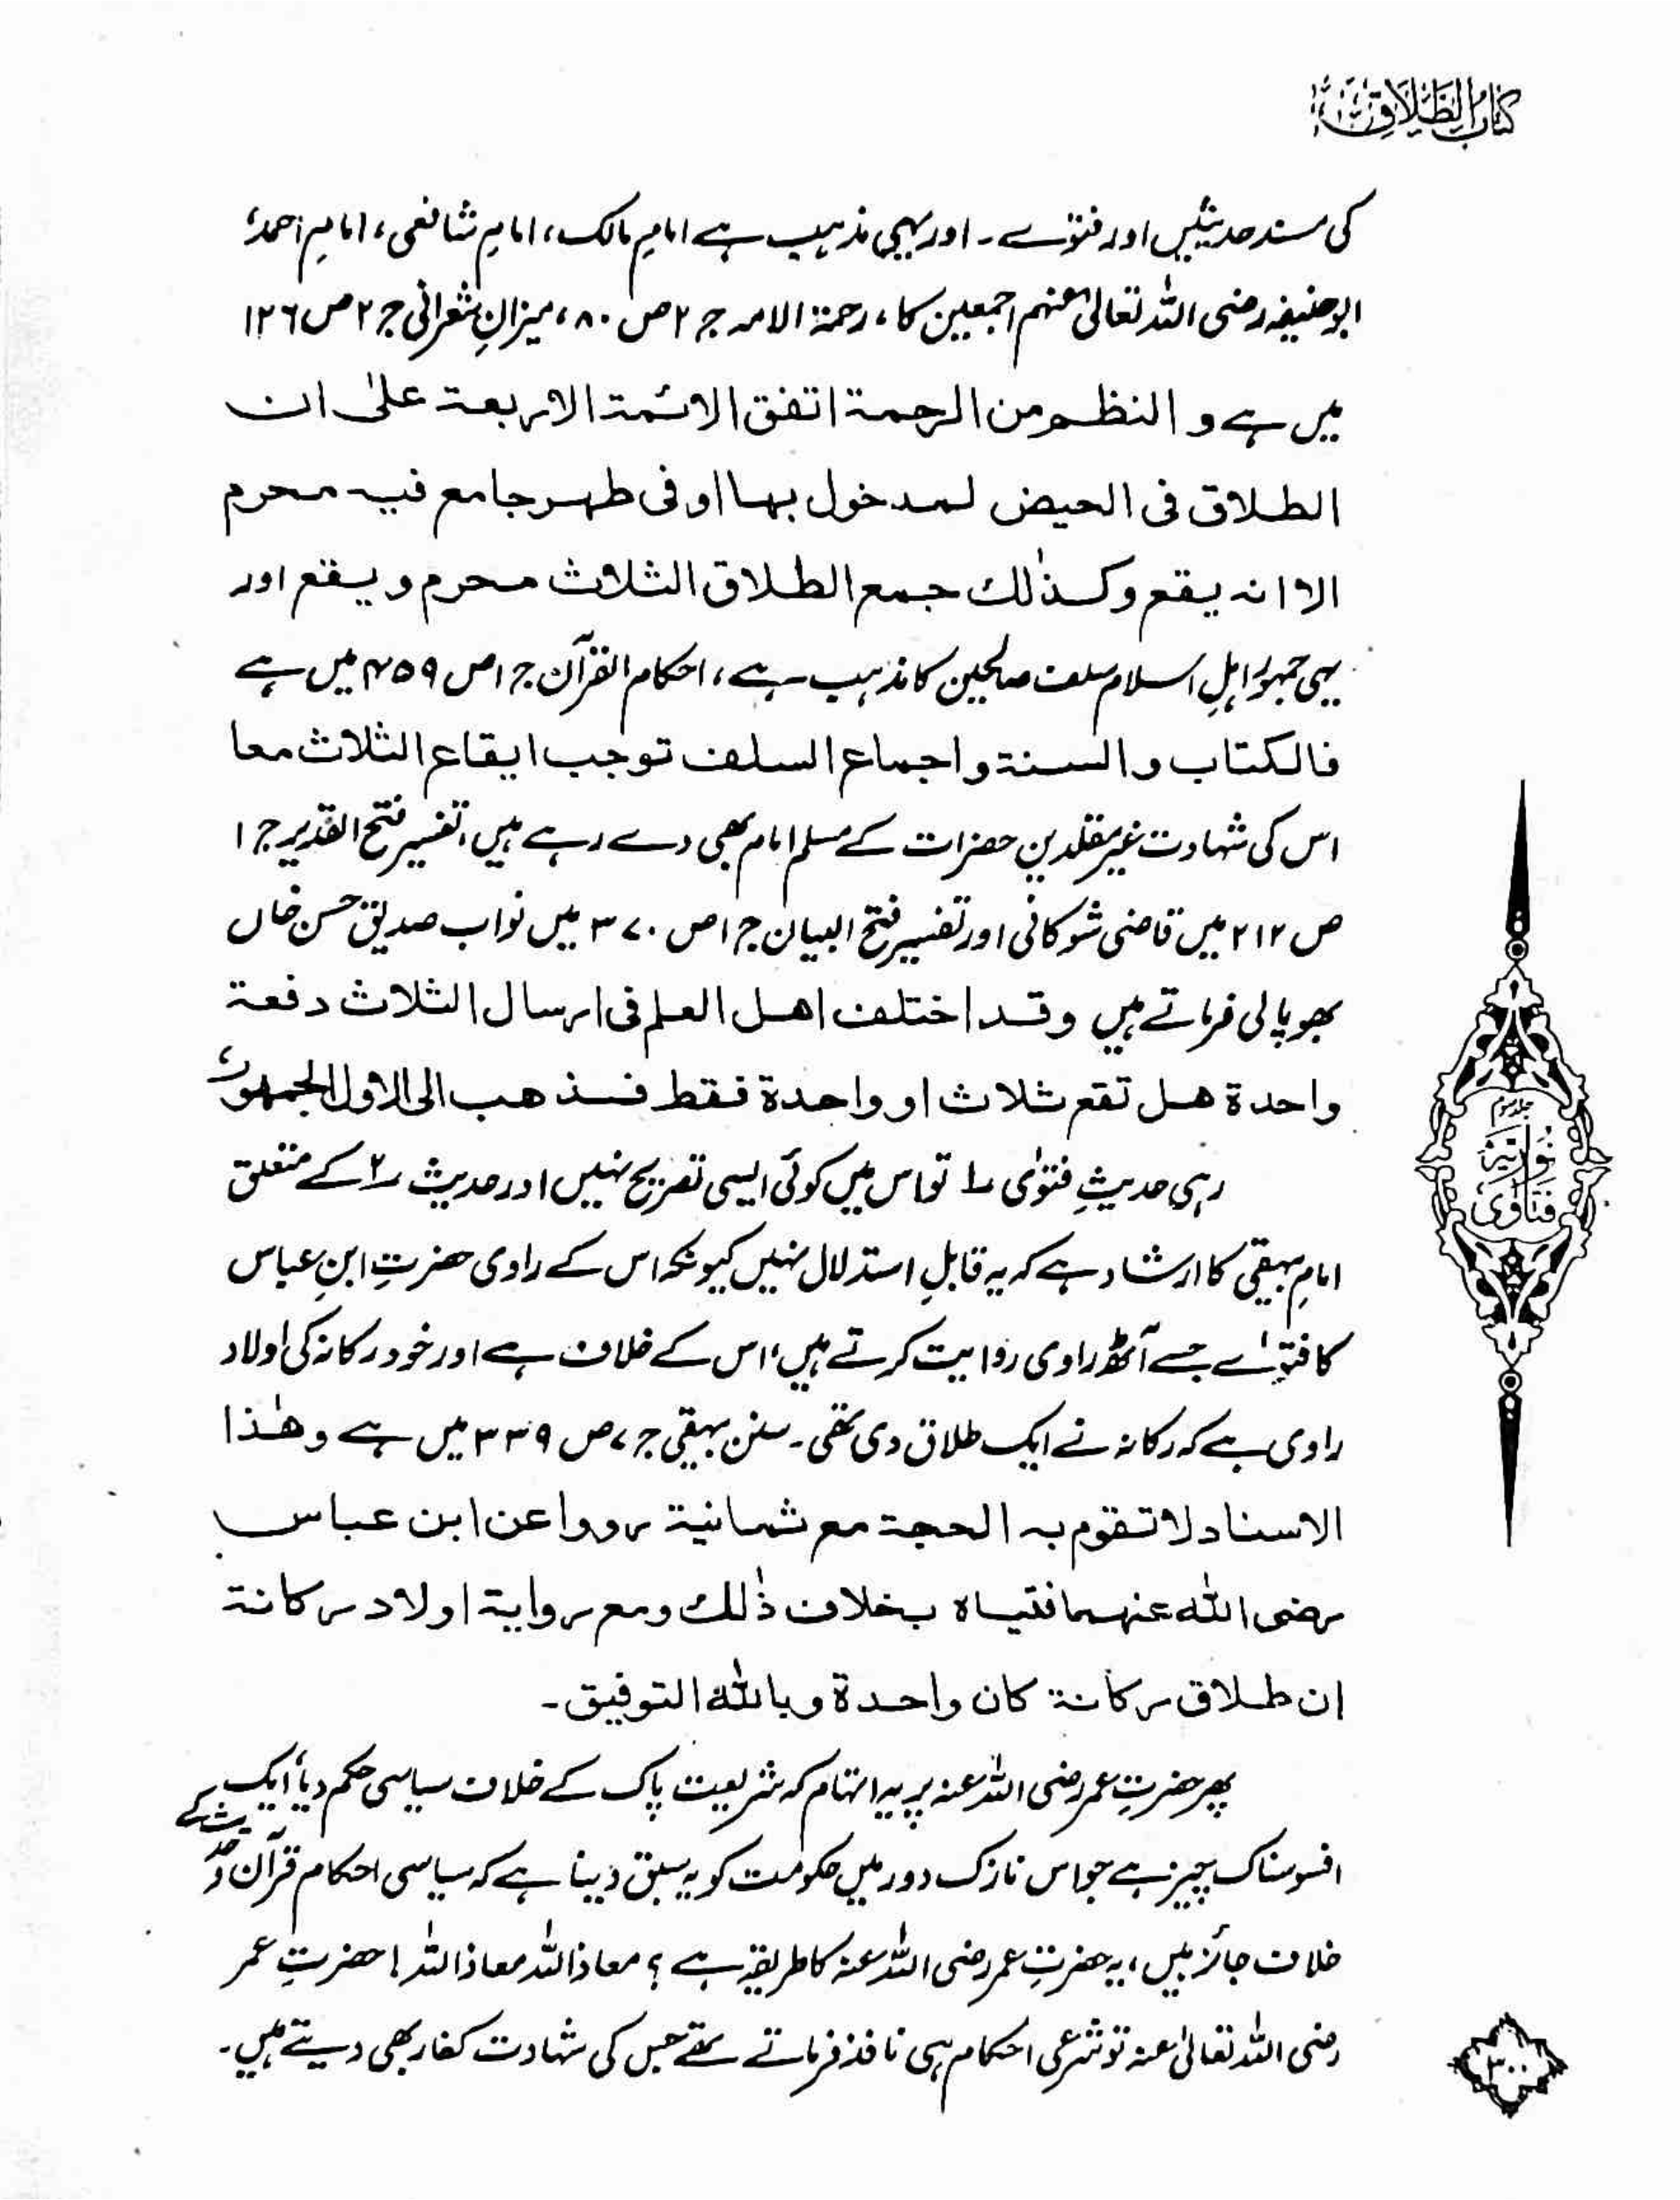 کتاب الطلاق
کی مسند حدیثیں اور فتوے۔ اور یہی مذہب ہے امامِ مالک، امامِ شافعی، امامِ احمد،
ابوحنیفہ رضی اللہ تعالیٰ عنہم اجمعین کا، رحمۃ الامہ ج ۲ ص ۸۰، میزانِ شعرانی ج ۲ ص ۱۲۶
میں ہے و النظم من الرحمۃ اتفق الائمۃ الاربعۃ علیٰ ان
الطلاق فی الحیض لمدخول بہا او فی طہر جامع فیہ محرم
الا انہ یقع وکذٰلک جمع الطلاق الثلاث محرم و یقع اور
یہی جمہور اہلِ اسلام سلف صالحین کا مذہب ہے، احکام القرآن ج ۱ ص ۴۵۹ میں ہے
فالکتاب والسنۃ واجماع السلف توجب ایقاع الثلاث معا
اس کی شہادت غیر مقلدین حضرات کے مسلم امام بھی دے رہے ہیں، تفسیر فتح القدیر ج ۱
ص ۲۱۲ میں قاضی شوکانی اور تفسیر فتح البیان ج ۱ ص ۳۷۰ میں نواب صدیق حسن خاں
بھوپالی فرماتے ہیں وقد اختلف اھل العلم فی ارسال الثلاث دفعۃ
واحدۃ ھل تقع ثلاث او واحدۃ فقط فذھب الی الاول الجمھور،
رہی حدیثِ فتوٰی ۱ تو اس میں کوئی ایسی تصریح نہیں اور حدیث ۲ کے متعلق
امامِ بیہقی کا ارشاد ہے کہ یہ قابلِ استدلال نہیں کیونکہ اس کے راوی حضرتِ ابنِ عباس
کا فتوٰے جسے آٹھ راوی روایت کرتے ہیں، اس کے خلاف ہے اور خود رکانہ کی اولاد
راوی ہے کہ رکانہ نے ایک طلاق دی تھی۔ سنن بیہقی ج ۷ ص ۳۳۹ میں ہے وھٰذا
الاسناد لا تقوم بہ الحجۃ مع ثمانیۃ رووا عن ابن عباس
رضی اللہ عنہما فتیاہ بخلاف ذٰلک ومع روایۃ اولاد رکانۃ
ان طلاق رکانۃ کان واحدۃ وباللہ التوفیق۔
پھر حضرتِ عمر رضی اللہ عنہ پر یہ اتہام کہ شریعت پاک کے خلاف سیاسی حکم دیا، ایک
افسوسناک چیز ہے جو اس نازک دور میں حکومت کو یہ سبق دینا ہے کہ سیاسی احکام قرآن و حدیث کے
خلاف جائز ہیں، یہ حضرتِ عمر رضی اللہ عنہ کا طریقہ ہے؟ معاذ اللہ معاذ اللہ! حضرتِ عمر
رضی اللہ تعالیٰ عنہ تو شرعی احکام ہی نافذ فرماتے تھے جس کی شہادت کفار بھی دیتے ہیں۔
جلد سوم
نوریہ
فتاویٰ
۳۰۰